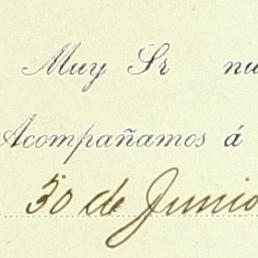 Muy Sr nu
Acompañamos á
30 de Junio